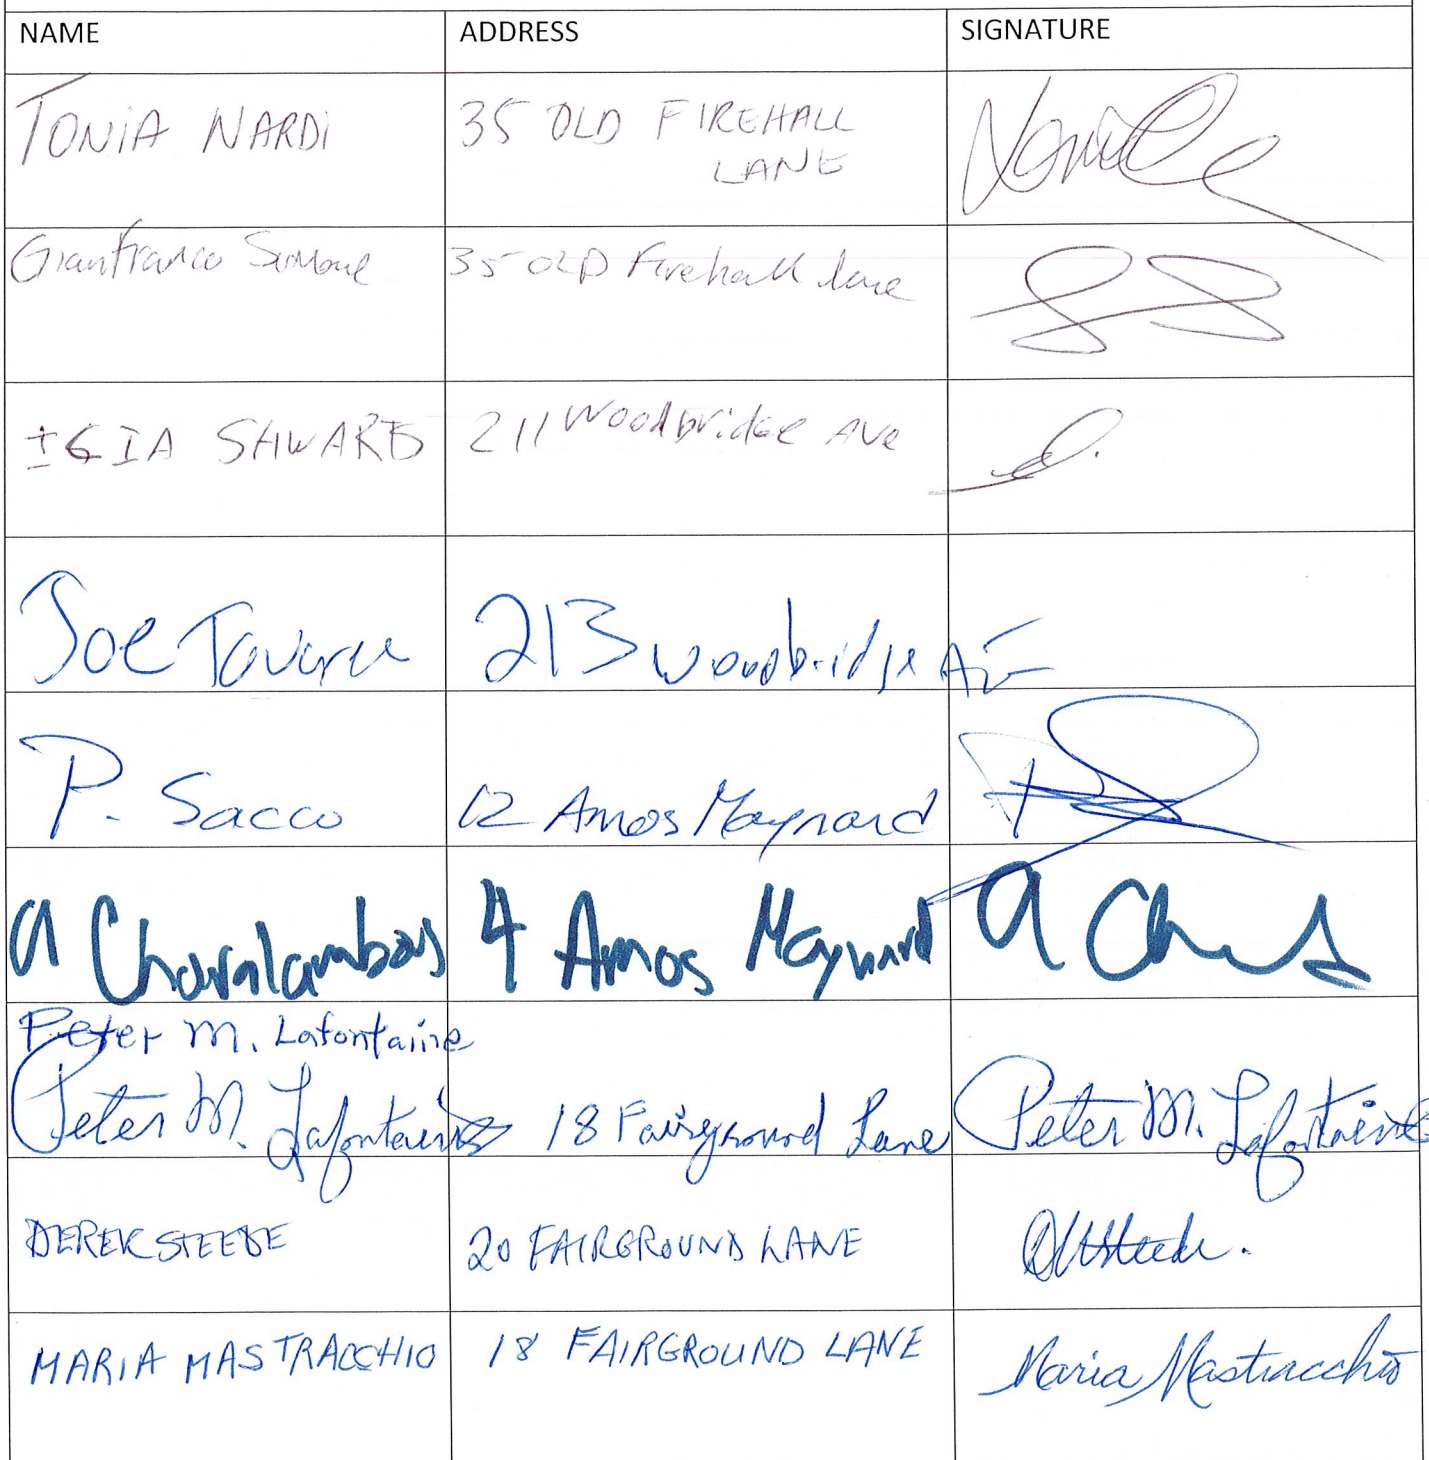 NAME ADDRESS SIGNATURE
TONIA NARDI 35 OLD FIREHALL
LANE
Gianfranco Simone 35 OLD Firehall lane
SHWARTS 211 Woodbridge Ave
Joe 213 Woodbridge AVE
P. Sacco 12 Amos Maynard
A Charalambous 4 Amos Maynard A
Peter M. Lafontaine
Peter M. Lafontaine 18 Fairground Lane Peter M. Lafontaine
DEREK STEEDE 20 FAIRGROUND LANE
MARIA MASTRACCHIO 18 FAIRGROUND LANE Maria Mastracchio